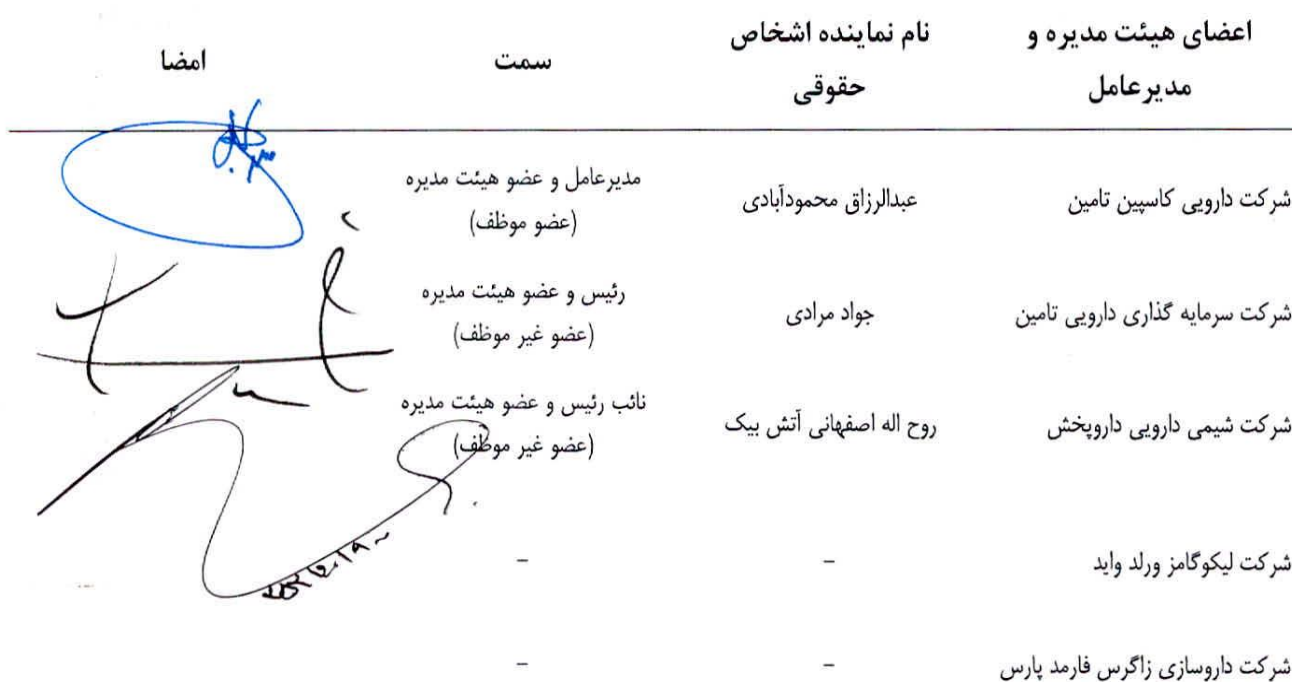 اعضای هیئت مدیره و مدیرعامل
نام نماینده اشخاص حقوقی
سمت
امضا
شرکت دارویی کاسپین تامین
عبدالرزاق محمودآبادی
مدیرعامل و عضو هیئت مدیره
(عضو موظف)
شرکت سرمایه گذاری دارویی تامین
جواد مرادی
رئیس و عضو هیئت مدیره
(عضو غیر موظف)
شرکت شیمی دارویی داروپخش
روح اله اصفهانی آتش بیک
نائب رئیس و عضو هیئت مدیره
(عضو غیر موظف)
شرکت لیکوگامز ورلد واید
–
–
شرکت داروسازی زاگرس فارمد پارس
–
–